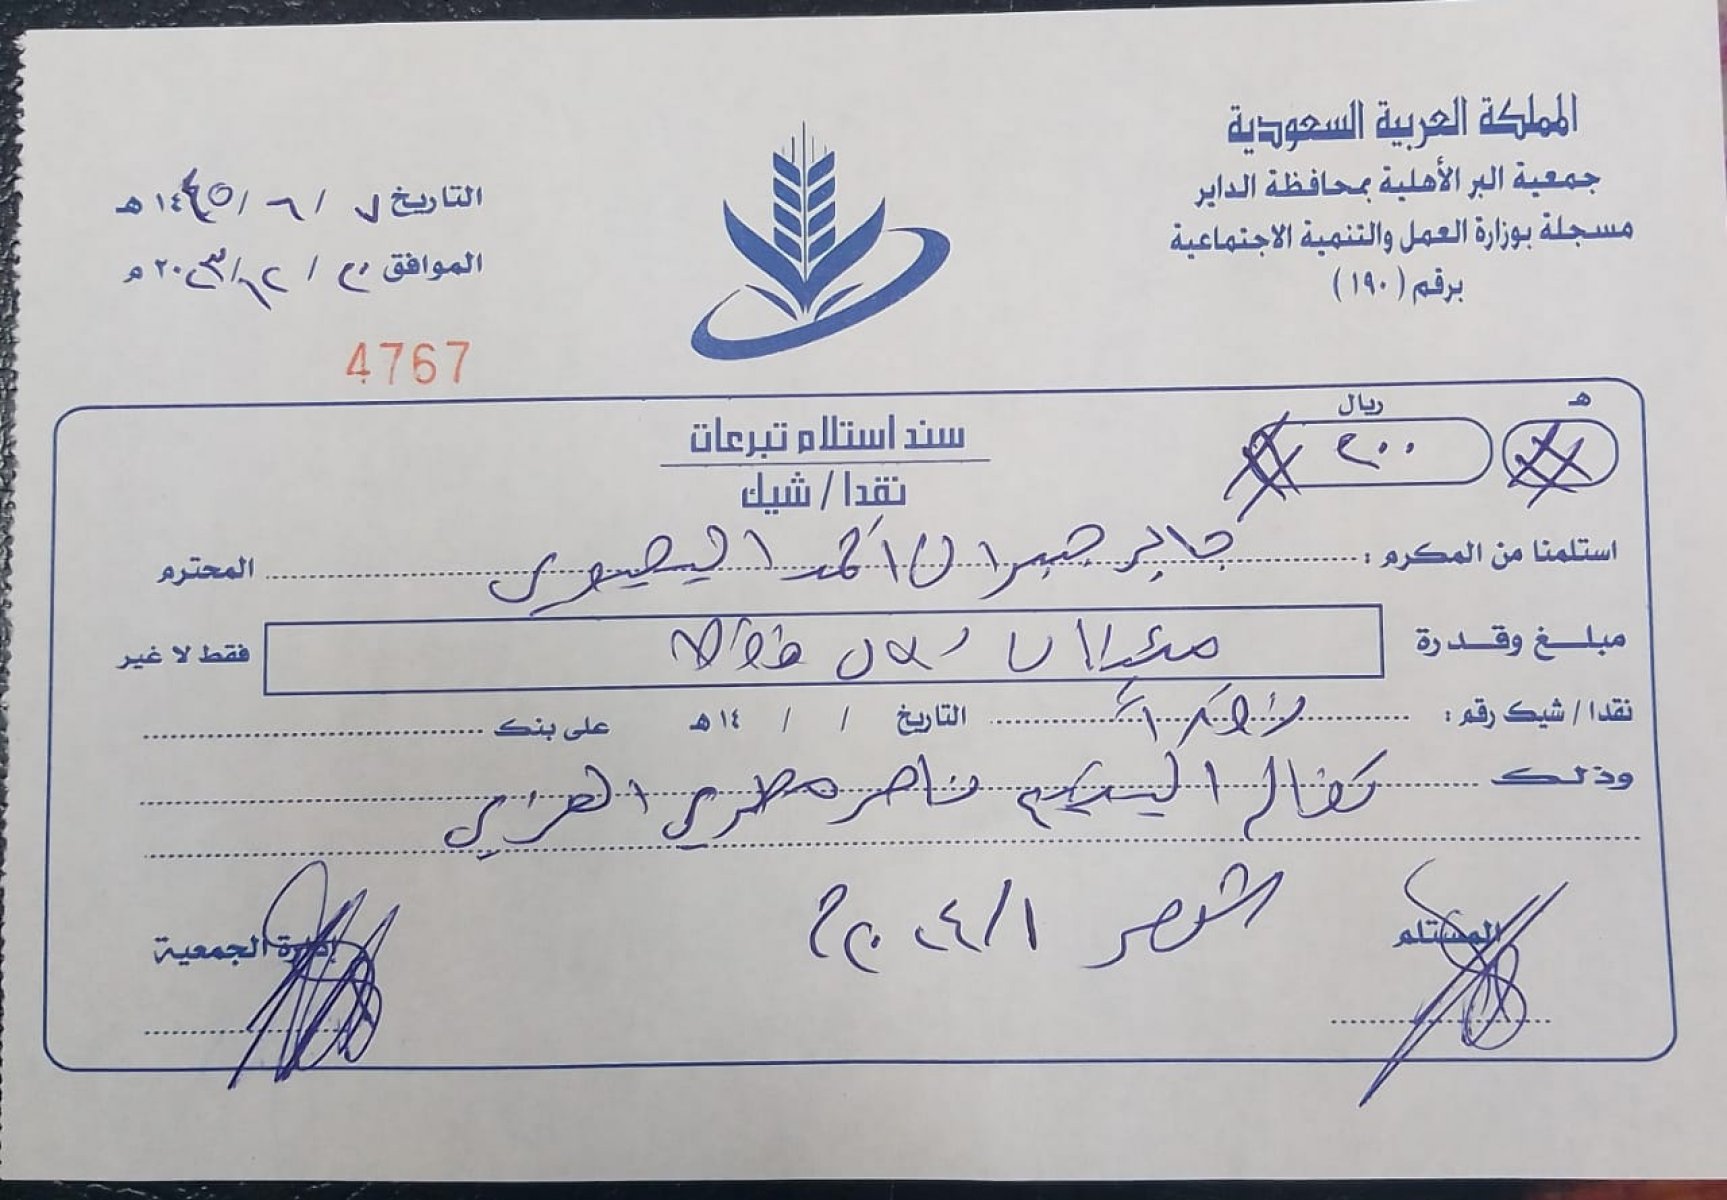 المملكة العربية السعودية
جمعية البر الأهلية بمحافظة الداير
مسجلة بوزارة العمل والتنمية الاجتماعية
برقم (١٩٠)
التاريخ ٧ / ٦ / ١٤٤٥ هـ
الموافق ٢٠ / ١٢ / ٢٠٢٣ م
4767
هـ
ريال
٢٠٠
سند استلام تبرعات
نقدا / شيك
استلمنا من المكرم : جابر جبران أحمد اليحيوي المحترم
مبلغ وقدرة مئتان ريال فقط فقط لا غير
نقدا / شيك رقم : نقداً التاريخ / / ١٤ هـ على بنك
وذلك كفالة اليتيم ناصر مطري العزي
لشهر ١ / ٢٠٢٤ م
المستلم
إدارة الجمعية